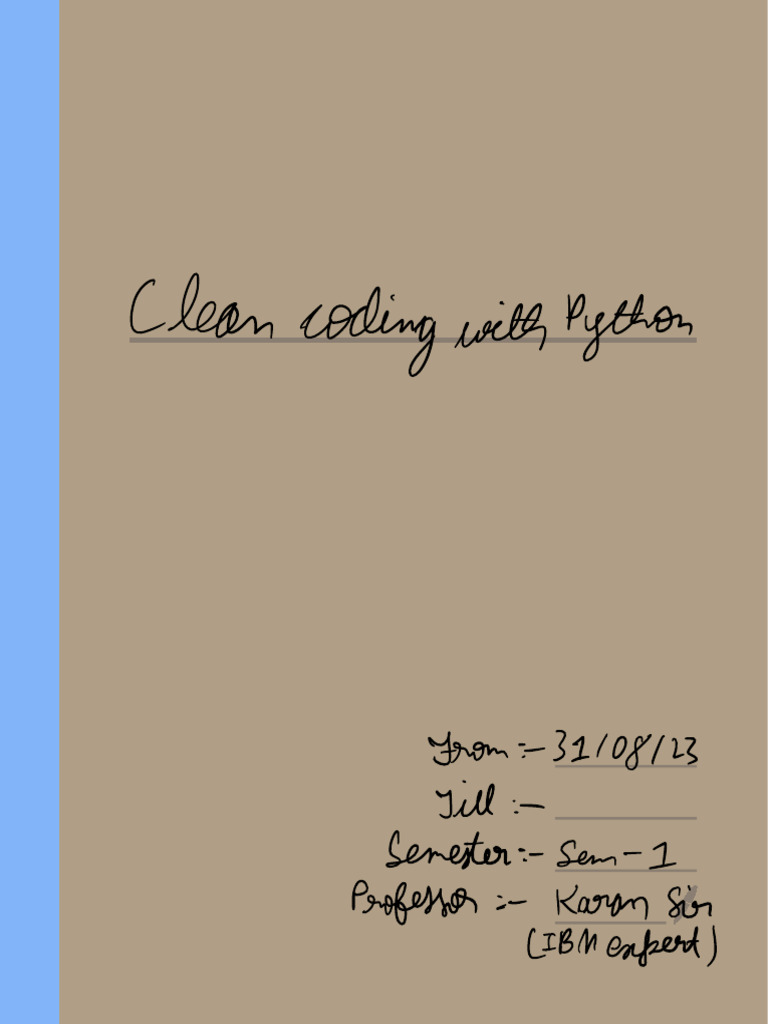 Clean coding with Python
From :- 31/08/23
Till :-
Semester :- Sem - 1
Professor :- Karan Sir
(IBM expert)